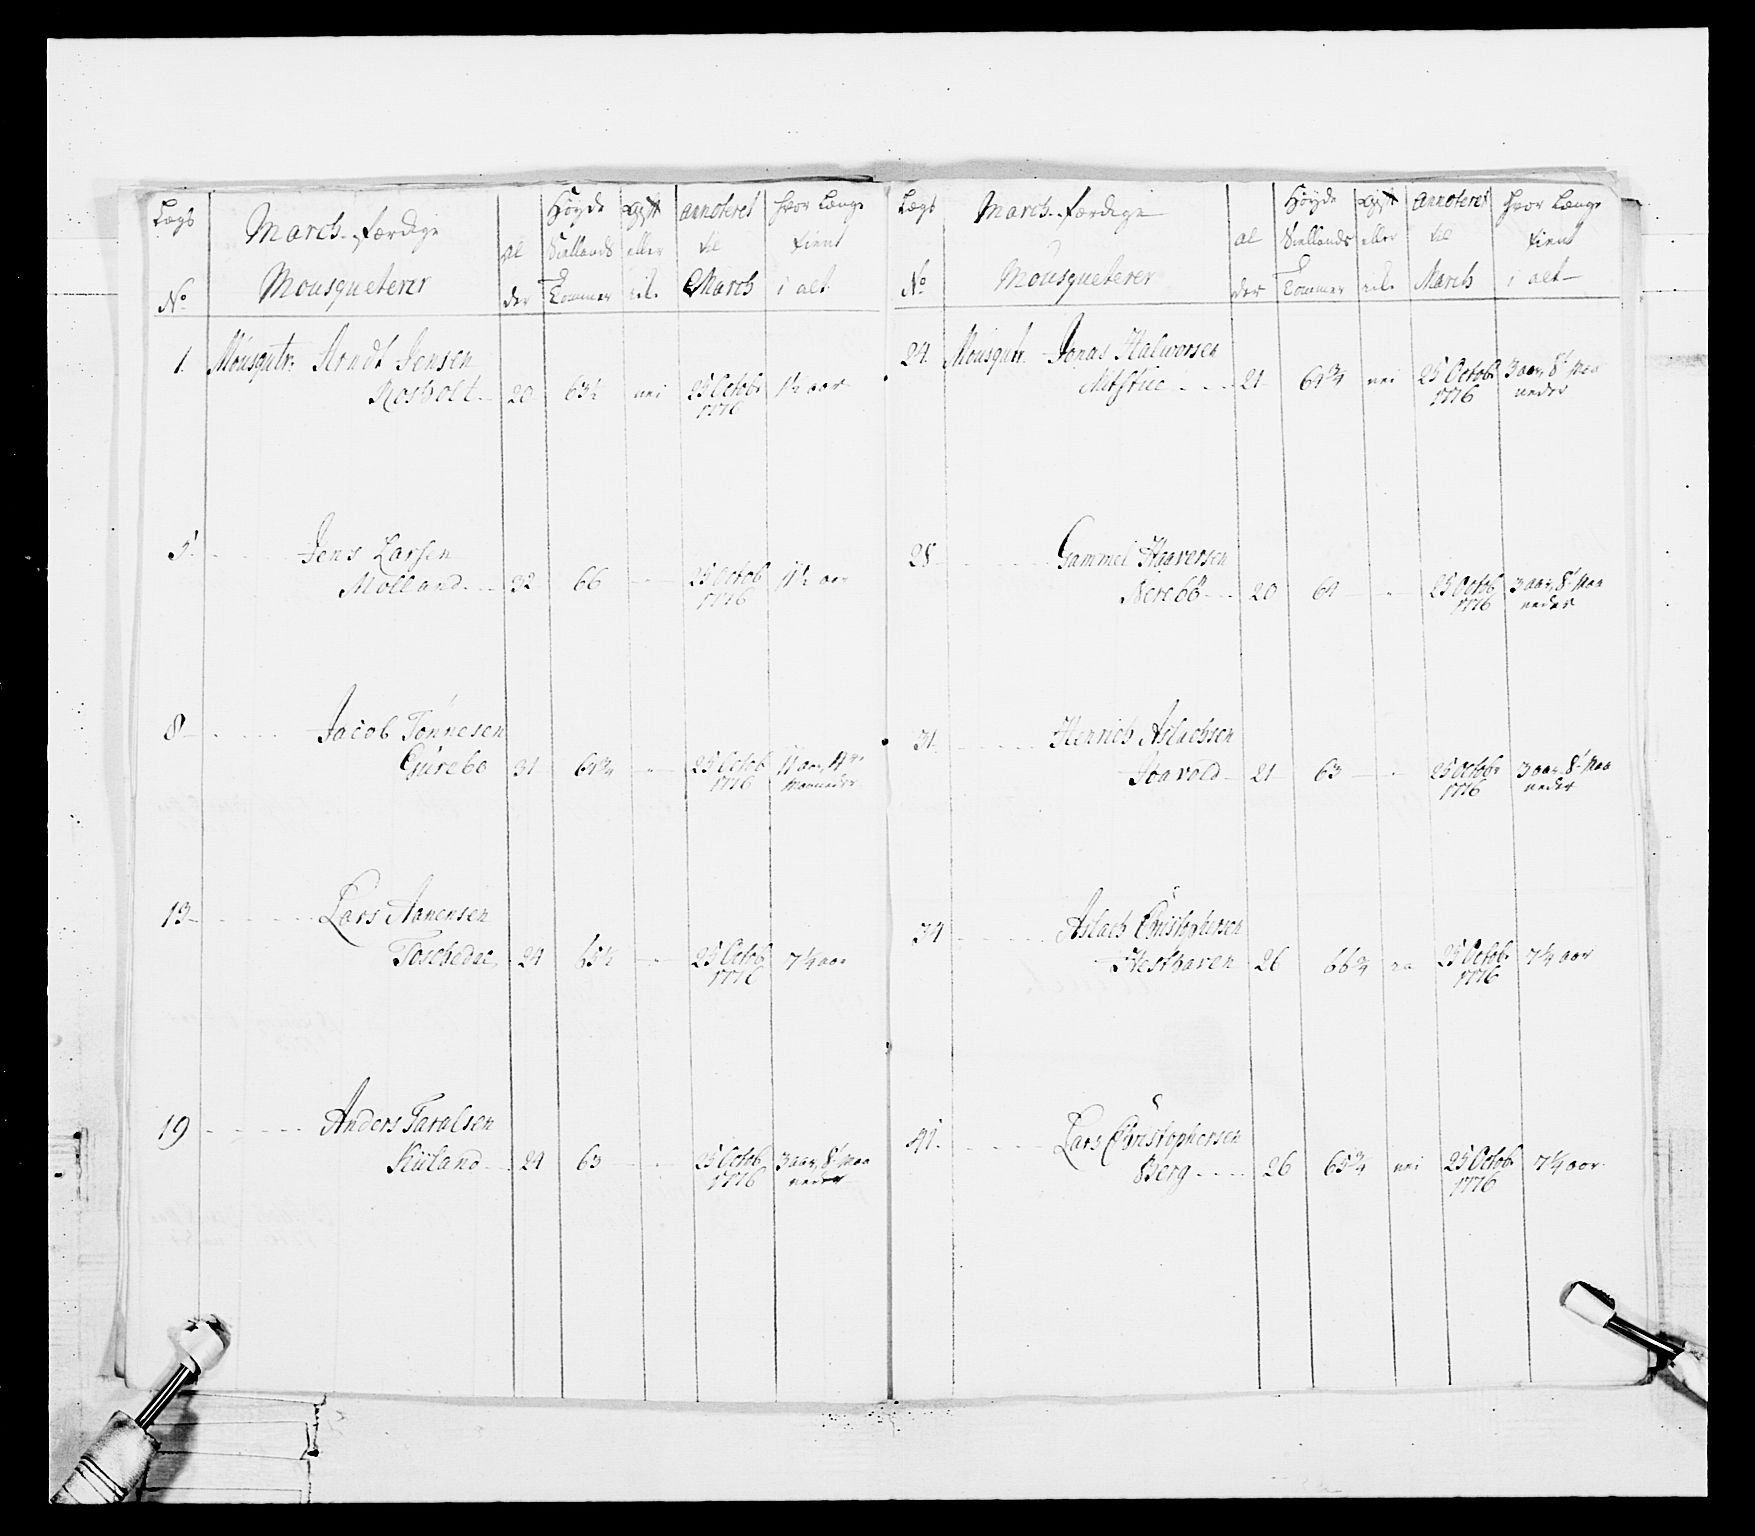 Lægs
No
March-færdige
Mousqueterer
al
der
Höyde
Siellands
Tommer
gift
eller
eil.
annoteret
til
March
hvor Længe
tient
i alt
1. Mousqutr: Arndt Jensen
Rosholt 20 63½ nei 25 Octobr 1776 1½ aar
5. Jens Larsen
Molland 32 66 25 Octob 1776 11½ aar
8 Jacob Tönnesen
Gurebo 31 25 Octob 1776 Maaneder
13 Lars Aanensen
24 65½ 25 Octob 1776 7¼ aar
19 Anders Taralsen
Kuland 24 63 25 Octob 1776 3 aar, 8 Maa
neder
Lægs
No
March-færdige
Mousqueterer
al
der
Höyde
Siellands
Tommer
gift
eller
eil.
annoteret
til
March
hvor Længe
tient
i alt
24. Mousqutr. Jonas Halworsen
21 64¾ nei 25 Octobr 1776 3 aar, 8 Maa
neder
28 Gammel Haaversen
Nerebö 20 64 25 Octob 1776 3 aar, 8 Maa
neder
31 Henrich Aslachsen
21 63 25 Octobr 1776 3 aar, 8 Maa
neder
34 Aslach Christophersen
Hesthaven 26 66¾ 25 Octobr 1776 7¼ aar
41. Lars Christophersen
Berg 26 65¾ nei 25 Octobr 1776 7¼ aar